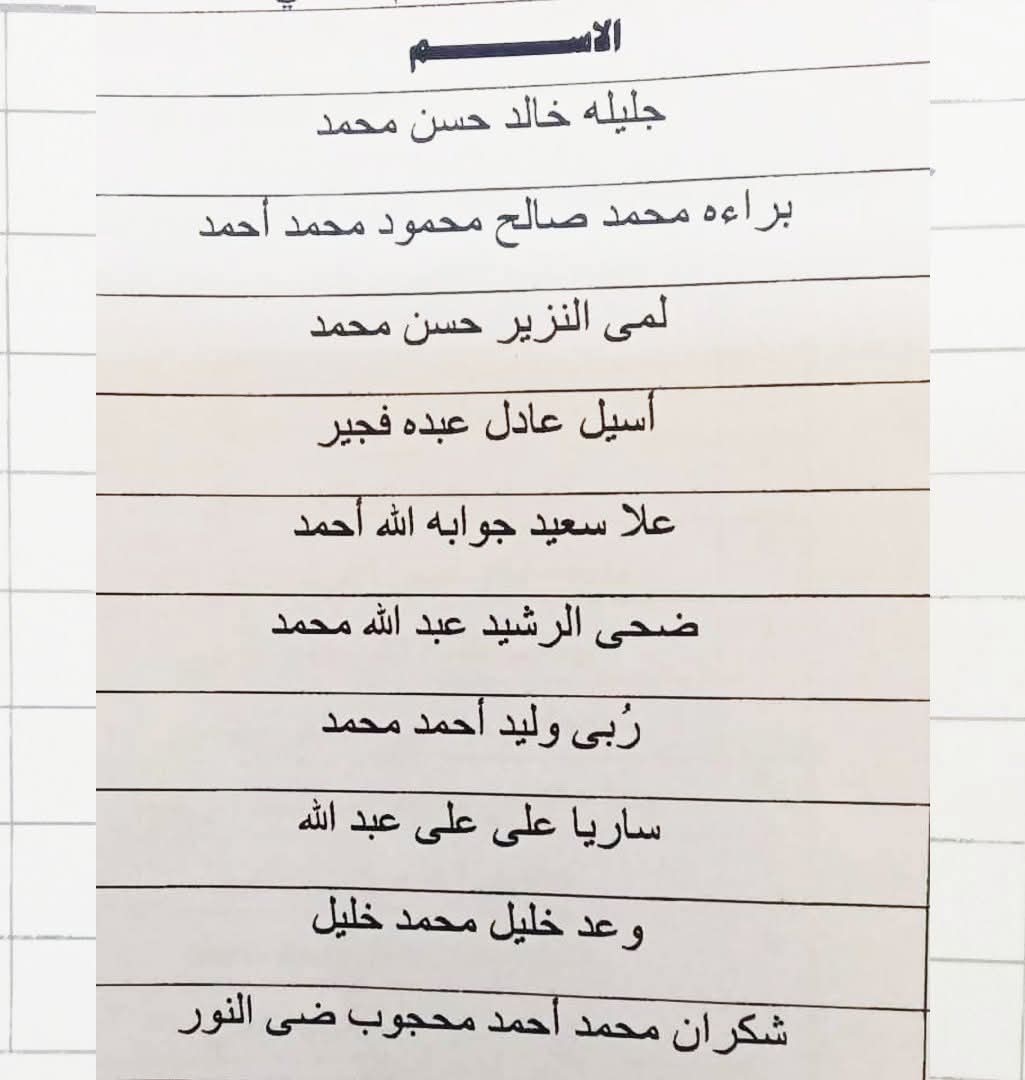 الاســـــــم
جليله خالد حسن محمد
براءه محمد صالح محمود محمد أحمد
لمى النزير حسن محمد
أسيل عادل عبده فجير
علا سعيد جوابه الله أحمد
ضحى الرشيد عبد الله محمد
رُبى وليد أحمد محمد
ساريا على على عبد الله
وعد خليل محمد خليل
شكران محمد أحمد محجوب ضى النور